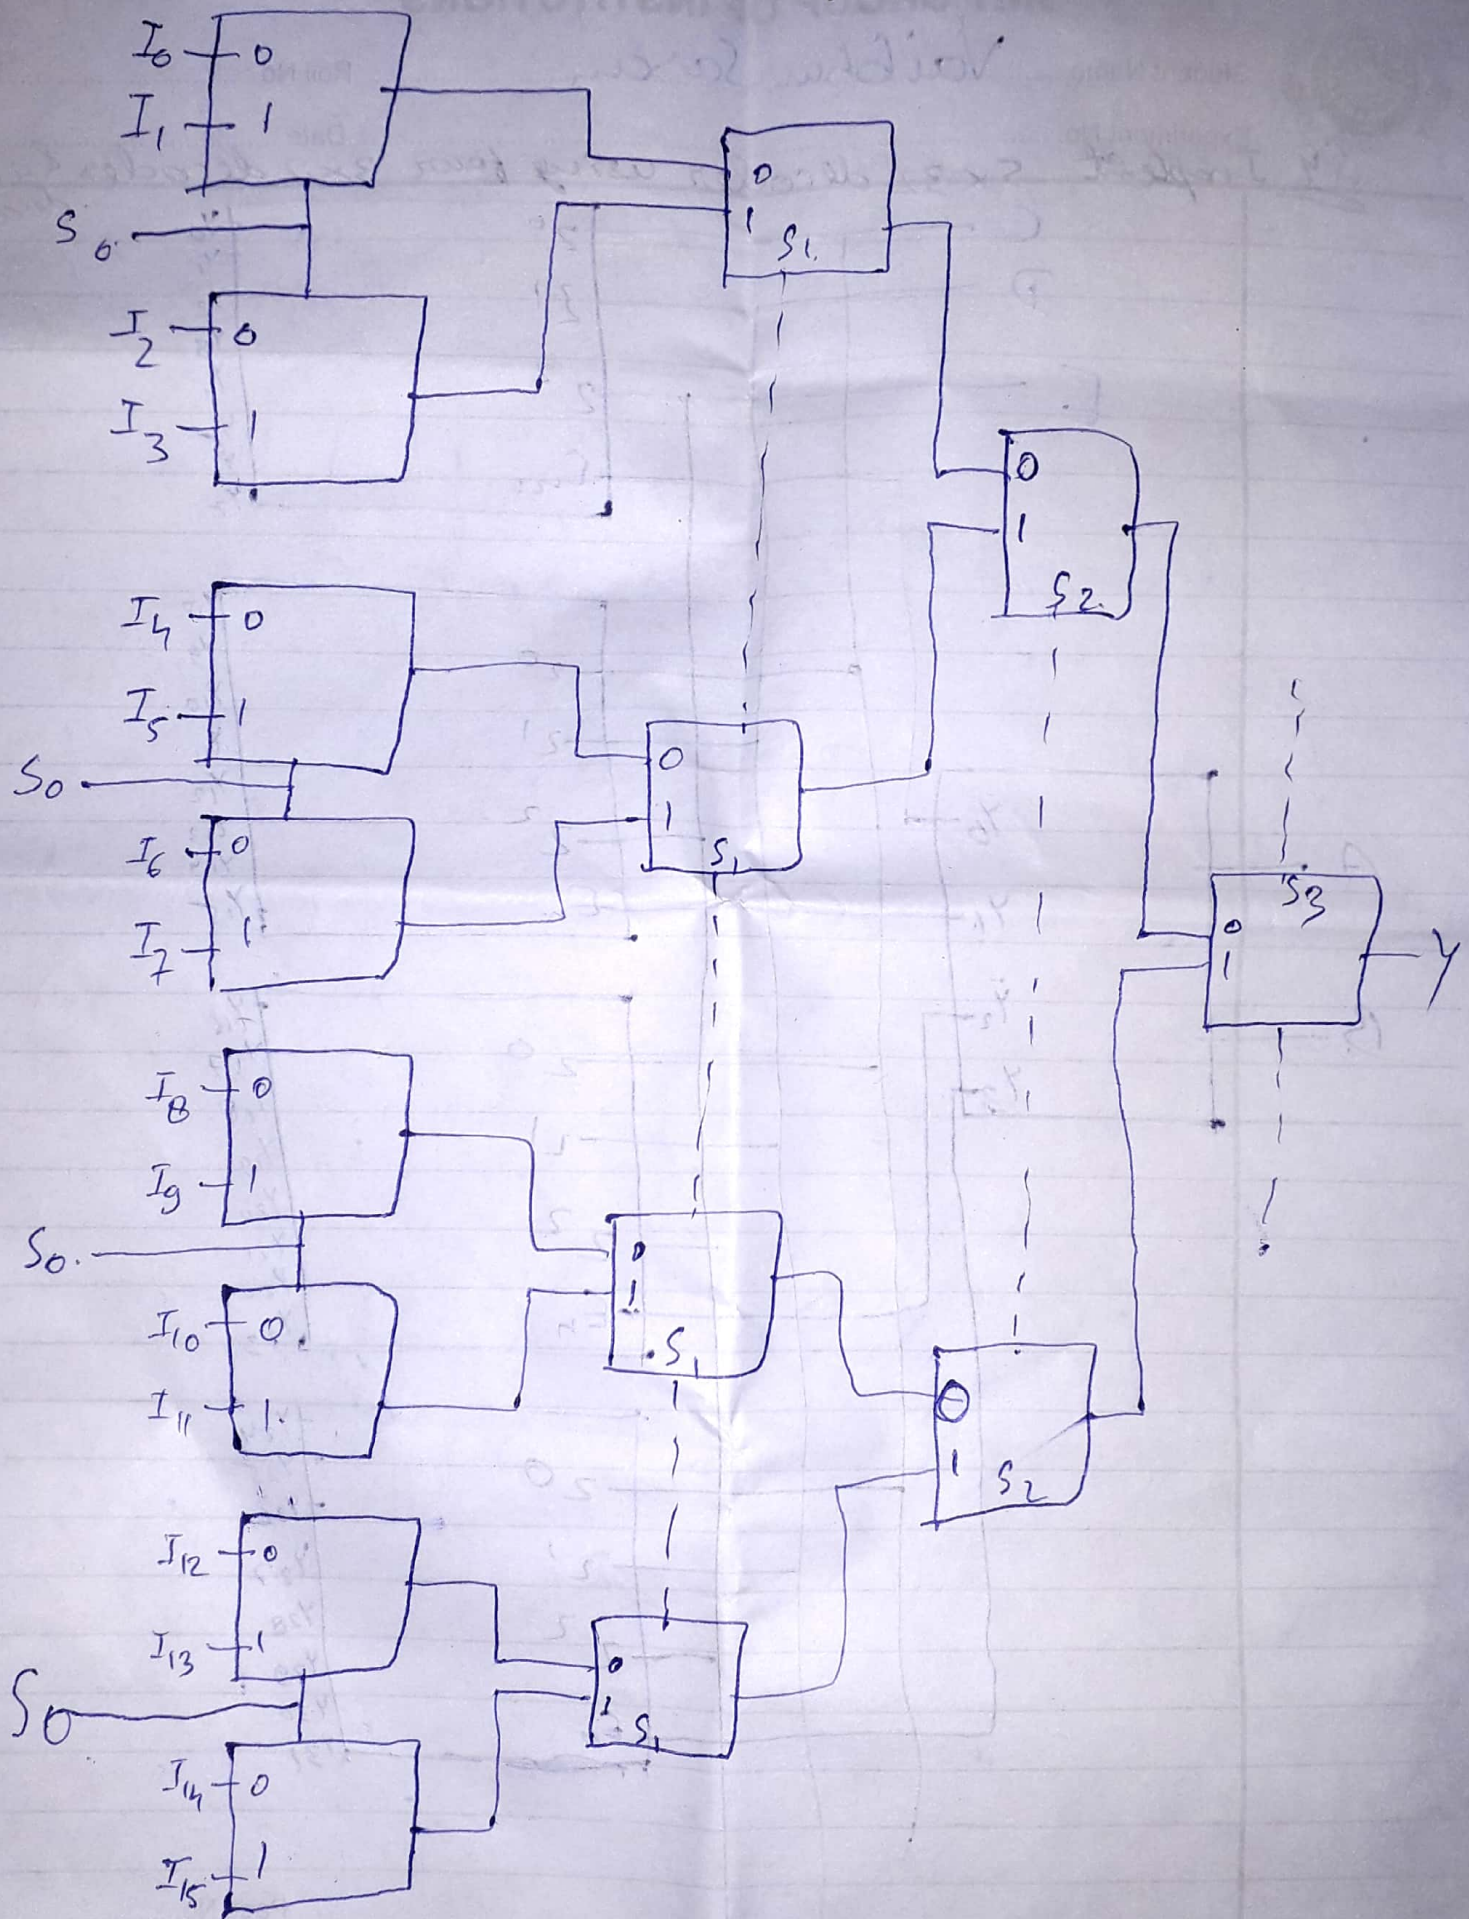 I0 0
I1 1
S0
I2 0
I3 1
0
1
S1
0
1
S2
I4 0
I5 1
S0
I6 0
I7 1
0
1
S1
S3
0
1
Y
I8 0
I9 1
S0
I10 0
I11 1
0
1
S1
0
1
S2
I12 0
I13 1
S0
I14 0
I15 1
0
1
S1